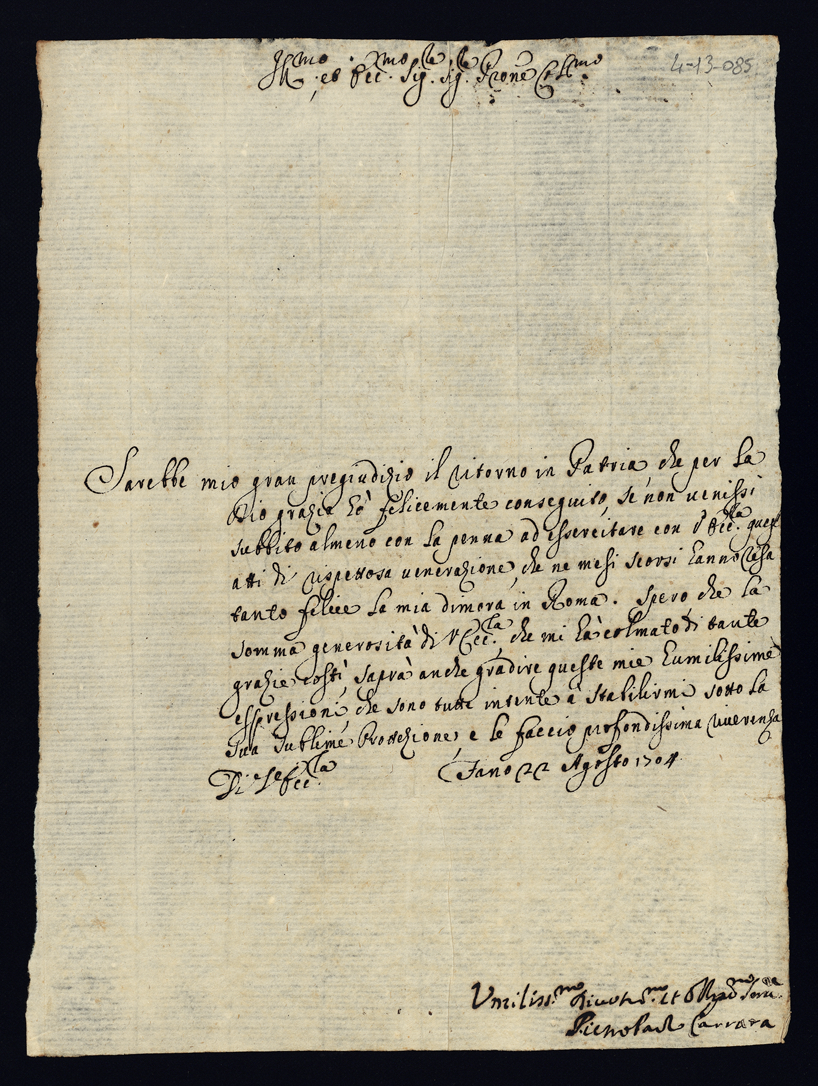 4-13-085
Ill.mo ed Ecc.mo Sig.re Sig.re P.rone Col.mo
Sarebbe mio gran pregiudizio il ritorno in Patria, che per La
Dio grazia hò felicemente conseguito, se non venissi
subbito almeno con La penna ad essercitare con V. Ecc.za quegl'
atti di rispettosa venerazione, che ne mesi scorsi hanno resa
tanto felice La mia dimora in Roma. Spero che La
somma generosità di V. Ecc.za che mi hà colmato di tante
grazie costì, saprà anche gradire queste mie humilissime
espressioni, che sono tutte intente à stabilirmi sotto La
sua sublime Prottezione, e le faccio profondissima riverenza
Di V. Ecc.za Fano 22 Agosto 1704
Umiliss.mo Divot.mo et Obligat.mo Serv.re
Pietro Paolo Carrara